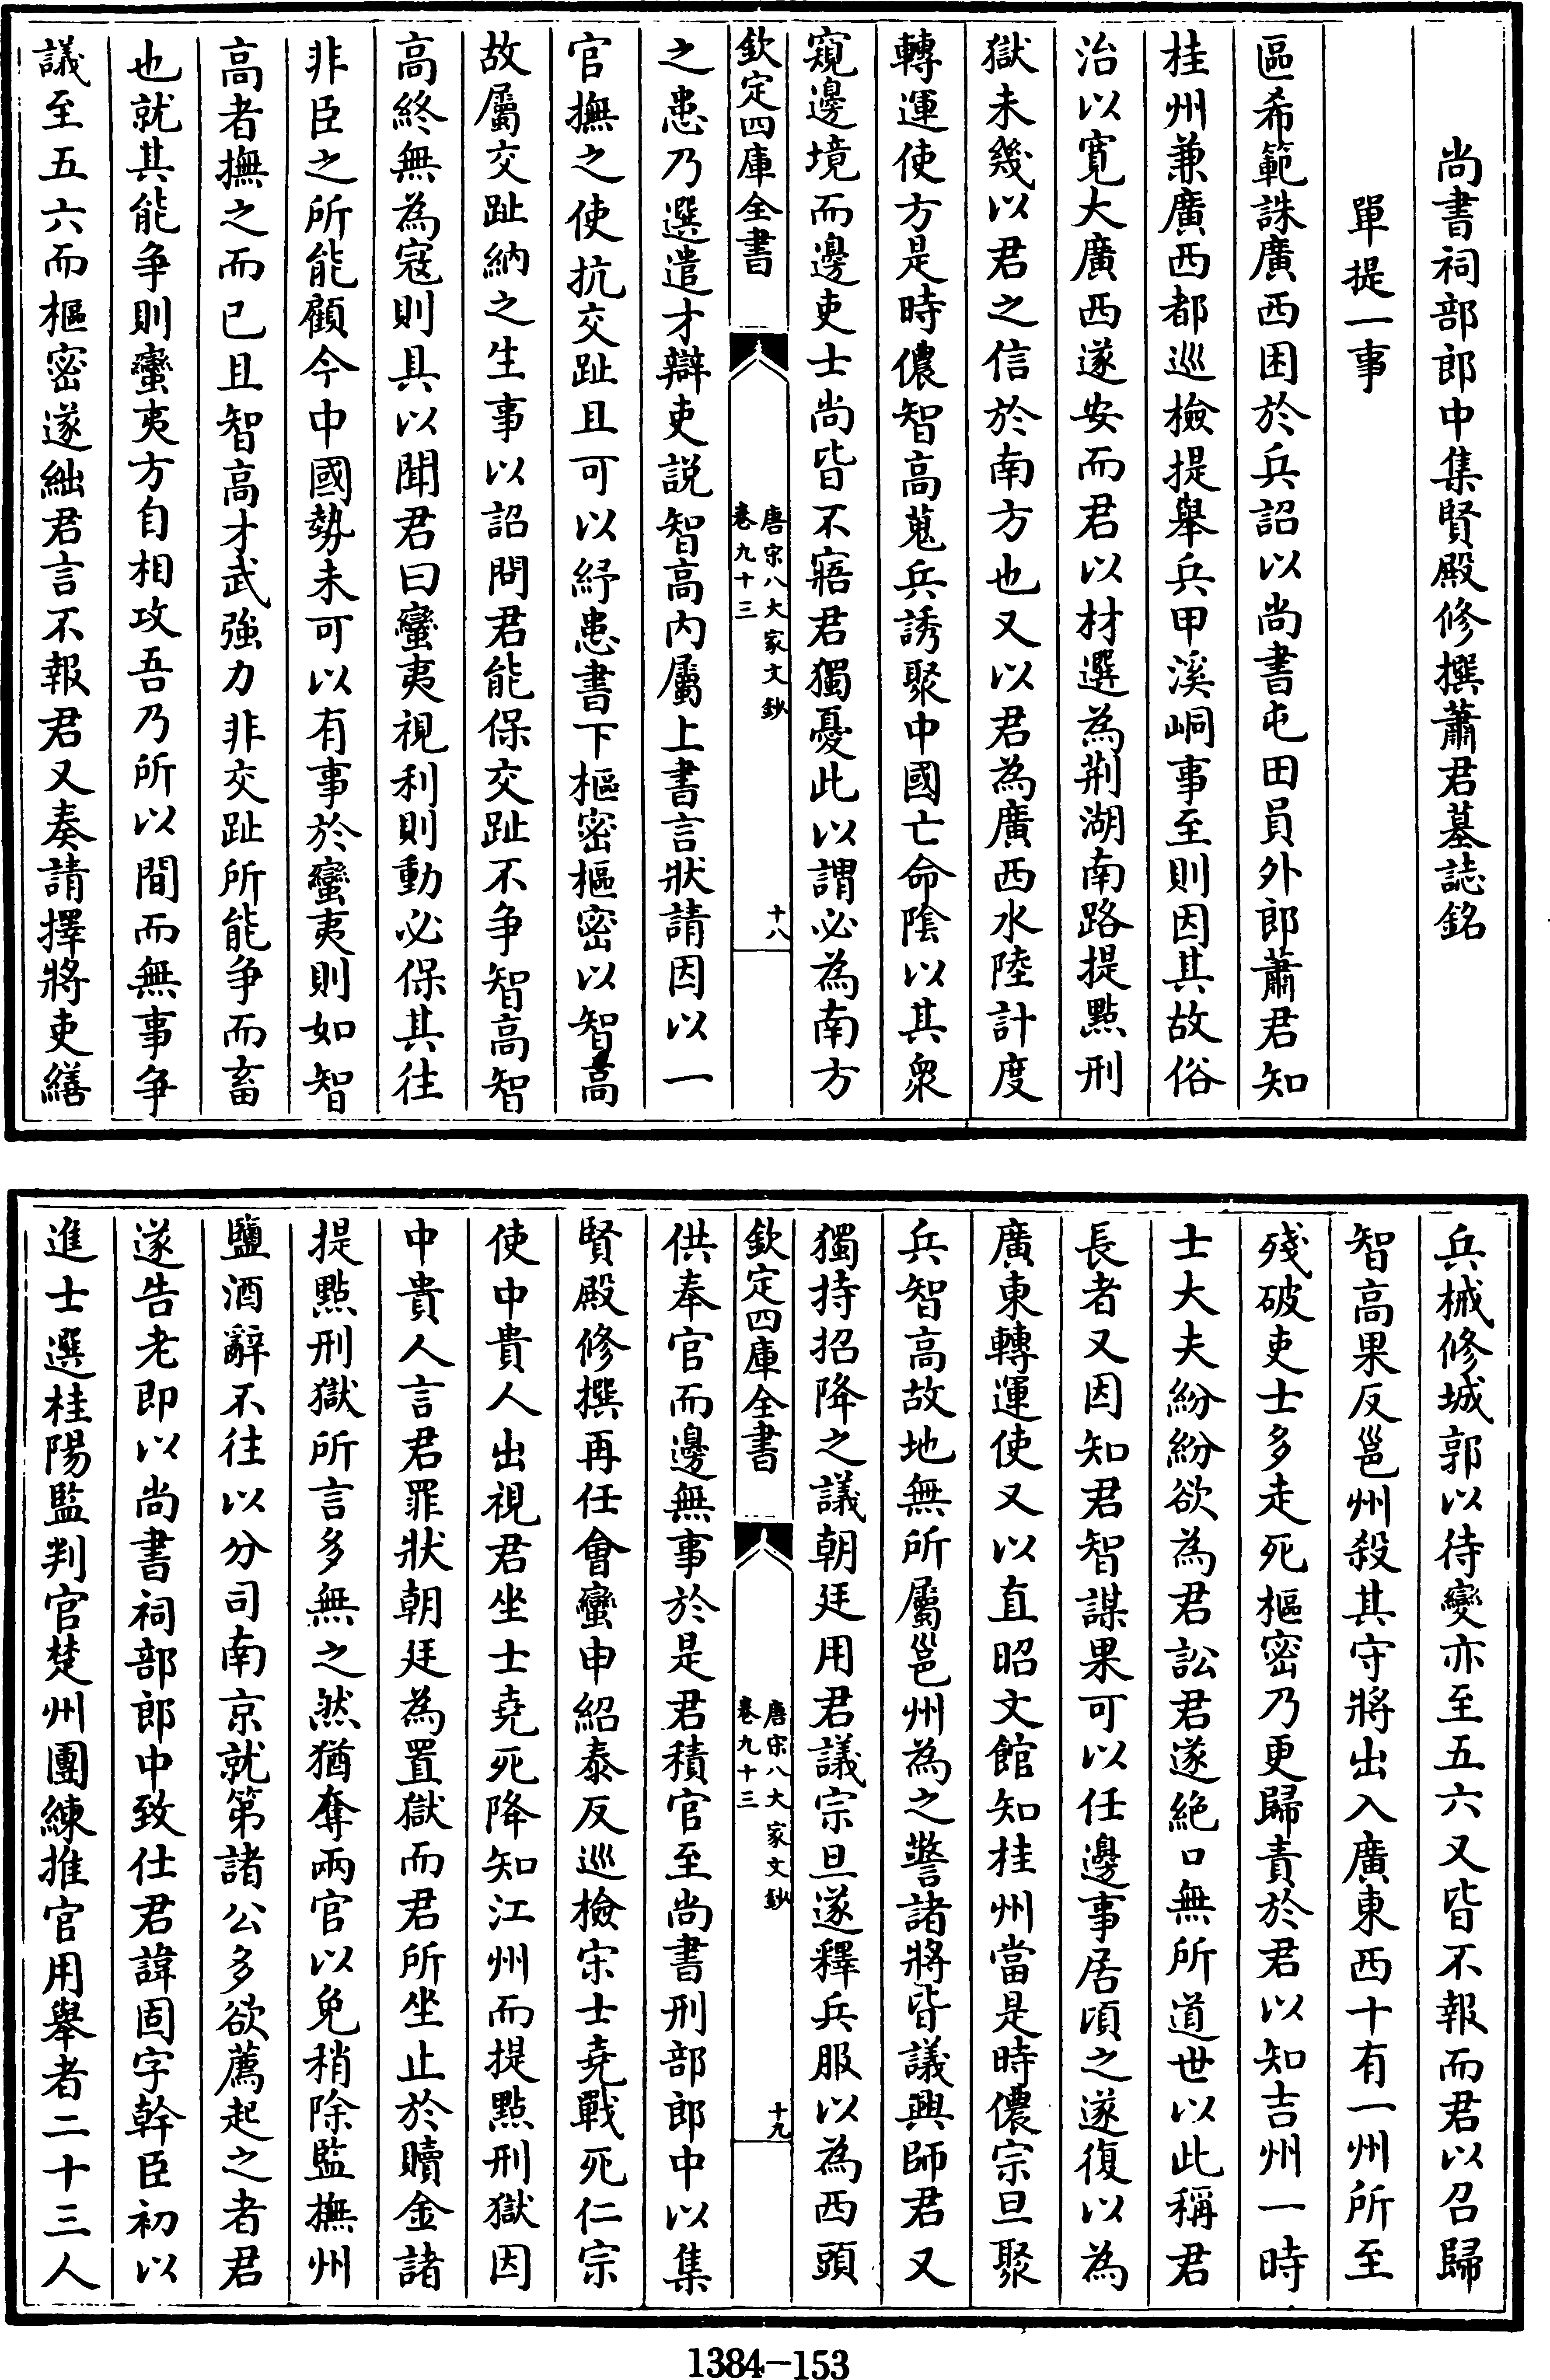 尚書祠部郎中集賢殿修撰蕭君墓誌銘
單提一事
區希範誅廣西困於兵詔以尚書屯田員外郎蕭君知
桂州兼廣西都巡檢提舉兵甲溪峒事至則因其故俗
治以寛大廣西遂安而君以材選為荆湖南路提點刑
獄未幾以君之信於南方也又以君為廣西水陸計度
轉運使方是時儂智高蒐兵誘聚中國亡命陰以其衆
窺邊境而邊吏士尚皆不寤君獨憂此以謂必為南方
欽定四庫全書
唐宋八大家文鈔
卷九十三
十八
之患乃選遣才辯吏説智高内屬上書言狀請因以一
官撫之使抗交趾且可以紓患書下樞密樞密以智高
故屬交趾納之生事以詔問君能保交趾不争智高智
高終無為寇則具以聞君曰蠻夷視利則動必保其往
非臣之所能顧今中國勢未可以有事於蠻夷則如智
高者撫之而已且智高才武強力非交趾所能争而畜
也就其能争則蠻夷方自相攻吾乃所以間而無事争
議至五六而樞密遂絀君言不報君又奏請擇將吏繕
兵械修城郭以待變亦至五六又皆不報而君以召歸
智高果反邕州殺其守將出入廣東西十有一州所至
殘破吏士多走死樞密乃更歸責於君以知吉州一時
士大夫紛紛欲為君訟君遂絶口無所道世以此稱君
長者又因知君智謀果可以任邊事居頃之遂復以為
廣東轉運使又以直昭文館知桂州當是時儂宗旦聚
兵智高故地無所屬邕州為之警諸將皆議興師君又
獨持招降之議朝廷用君議宗旦遂釋兵服以為西頭
欽定四庫全書
唐宋八大家文鈔
卷九十三
十九
供奉官而邊無事於是君積官至尚書刑部郎中以集
賢殿修撰再任會蠻申紹泰反巡檢宋士堯戰死仁宗
使中貴人出視君坐士堯死降知江州而提點刑獄因
中貴人言君罪狀朝廷為置獄而君所坐止於贖金諸
提點刑獄所言多無之然猶奪兩官以免稍除監撫州
鹽酒辭不往以分司南京就第諸公多欲薦起之者君
遂告老即以尚書祠部郎中致仕君諱固字幹臣初以
進士選桂陽監判官楚州團練推官用舉者二十三人
1384-153